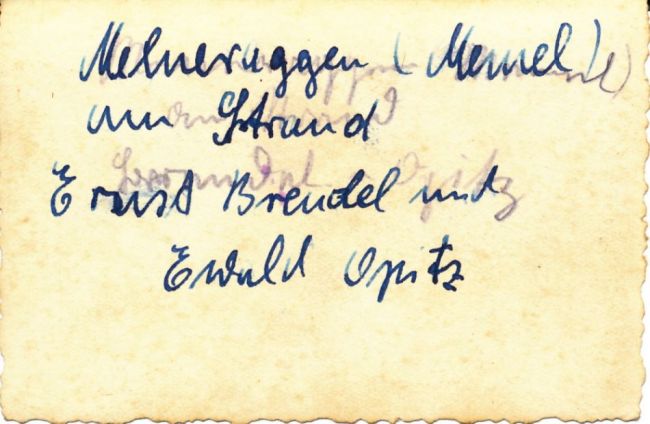 Melneruggen (Memel)
am Strand
Ernst Brendel und
Ewald Opitz